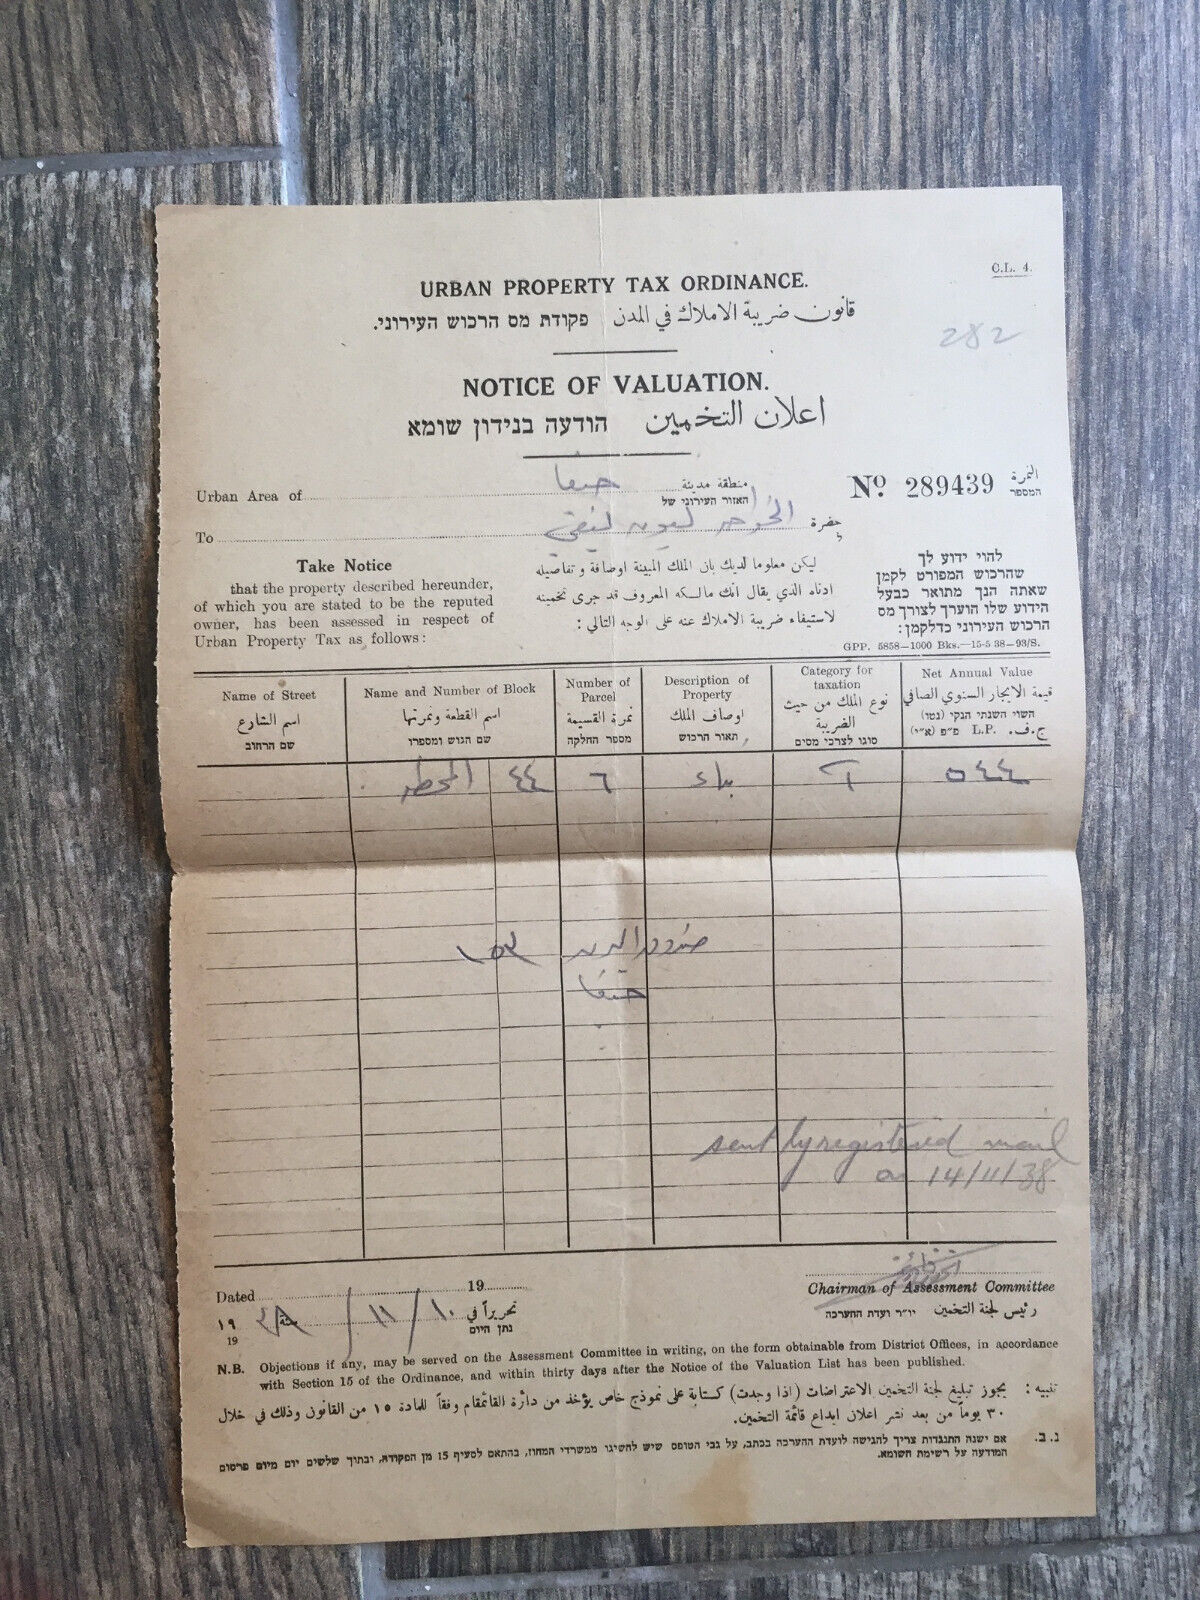 C.L. 4.
URBAN PROPERTY TAX ORDINANCE.
قانون ضريبة الاملاك في المدن פקודת מס הרכוש העירוני.
282
NOTICE OF VALUATION.
اعلان التخمين הודעה בנידון שומא
Urban Area of حيفا منطقة مدينة
האזור העירוני של
Nº 289439 النمرة
המספר
To الخواجه ليون حضرة
ל
Take Notice
that the property described hereunder,
of which you are stated to be the reputed
owner, has been assessed in respect of
Urban Property Tax as follows:
ليكن معلوما لديك بان الملك المبينة اوصافة وتفاصيله
ادناه الذي يقال انك مالكه المعروف قد جرى تخمينه
لاستيفاء ضريبة الاملاك عنه على الوجه التالي:
להוי ידוע לך
שהרכוש המפורט לקמן
שאתה הנך מתואר כבעל
הידוע שלו הוערך לצורך מס
הרכוש העירוני כדלקמן:
GPP. 5858—1000 Bks.—15-5 38—93/S.
Name of Street
اسم الشارع
שם הרחוב
Name and Number of Block
اسم القطعة ونمرتها
שם הגוש ומספרו
Number of Parcel
نمرة القسيمة
מספר החלקה
Description of Property
اوصاف الملك
תאור הרכוש
Category for taxation
نوع الملك من حيث الضريبة
סוגו לצרכי מסים
Net Annual Value
قيمة الايجار السنوي الصافي
השווי השנתי הנקי (נטו)
ج.ف. L.P. פ״פ (א״י)
المحطه ٤٤ ٦ بناء ٥٤٤
صندوق البريد
حيفا
sent by registered mail
on 14/11/38
Chairman of Assessment Committee
رئيس لجنة التخمين יו״ר ועדת ההערכה
Dated 19
١٩٣٨ سنة / ١١ / ١٠ تحريراً في
19 נתן היום
N.B. Objections if any, may be served on the Assessment Committee in writing, on the form obtainable from District Offices, in accordance
with Section 15 of the Ordinance, and within thirty days after the Notice of the Valuation List has been published.
تنبيه: يجوز تبليغ لجنة التخمين الاعتراضات (اذا وجدت) كتابة على نموذج خاص يؤخذ من دائرة القائمقام وفقاً للمادة ١٥ من القانون وذلك في خلال
٣٠ يوماً من بعد نشر اعلان ايداع قائمة التخمين.
נ. ב. אם ישנה התנגדות צריך להגישה לועדת ההערכה בכתב, על גבי הטופס שיש להשיגו ממשרדי המחוז, בהתאם לסעיף 15 מן הפקודה, ובתוך שלשים יום מיום פרסום
המודעה על רשימת השומא.